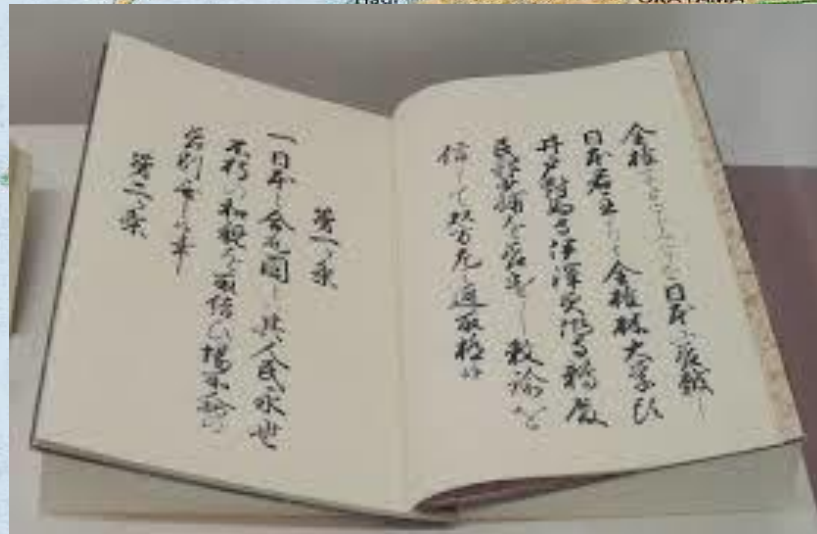 OKAYAMA
全権
日本に差越し
日本君主よりハ全権林大学頭
井戸対馬守伊澤美作守鵜殿
民部少輔を差遣し敕諭を
信して双方左之通取極候
第一ヶ条
一日本と合衆国とハ其人民永世
不朽の和親を取結ひ場所人柄の
差別無之候事
第二ヶ条